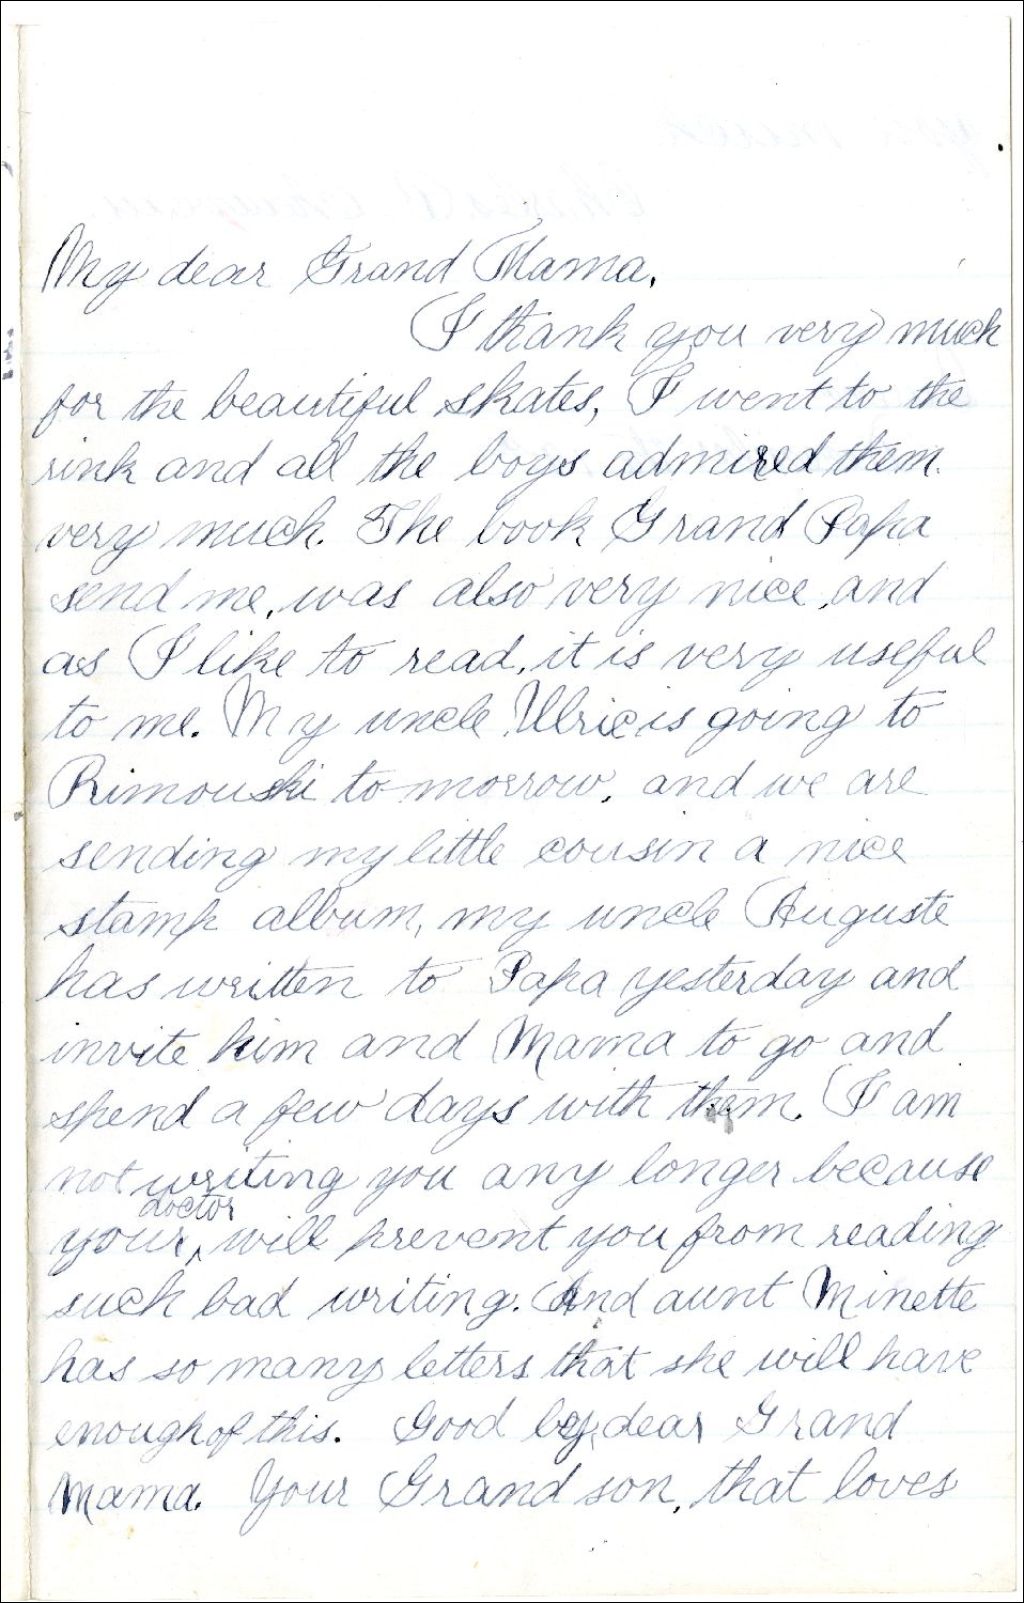 My dear Grand Mama,
I thank you very much
for the beautiful skates, I went to the
rink and all the boys admired them
very much. The book Grand Papa
send me, was also very nice, and
as I like to read, it is very useful
to me. My uncle Ulric is going to
Rimouski to morrow, and we are
sending my little cousin a nice
stamp album, my uncle Auguste
has written to Papa yesterday and
invite him and Mama to go and
spend a few days with them. I am
not writing you any longer because
doctor
your ^ will prevent you from reading
such bad writing. And aunt Minette
has so many letters that she will have
enough of this. Good by, dear Grand
Mama. Your Grand son, that loves